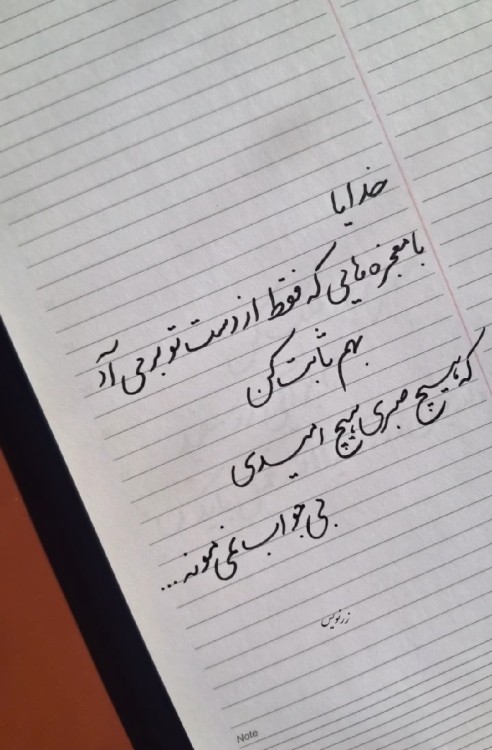 خدایا
با معجزه هایی که فقط از دست تو بر می آد
بهم ثابت کن
که هیچ صبری هیچ امیدی
بی جواب نمی مونه...
زرنویس
Note